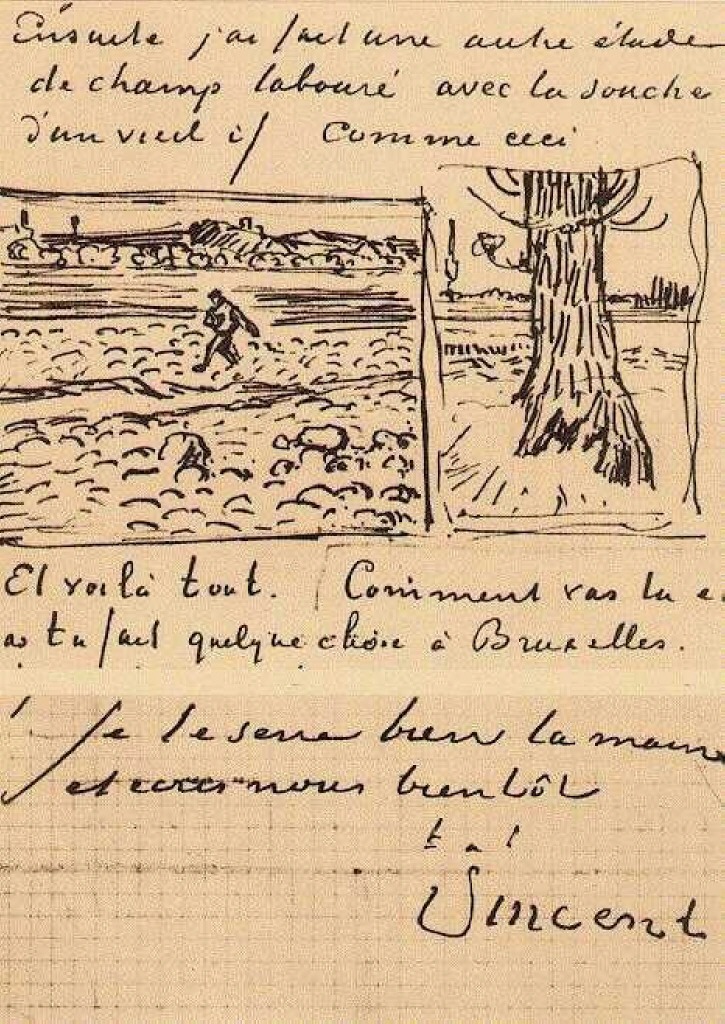 Ensuite j'ai fait une autre étude
de champ labouré avec la souche
d'un vieil if Comme ceci
Et voilà tout. Comment vas tu e
as tu fait quelque chose à Bruxelles.
Je te serre bien la main
et écris nous bientôt
t. à t.
Vincent